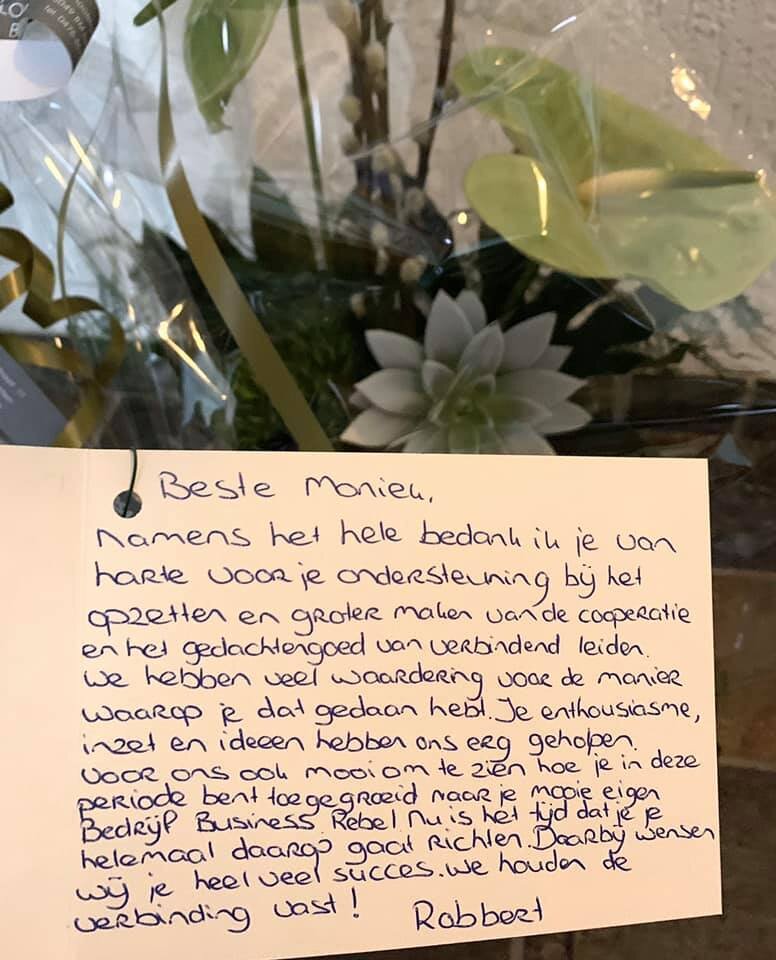 Beste Moniek,
namens het hele bedank ik je van
harte voor je ondersteuning bij het
opzetten en groter maken van de cooperatie
en het gedachtengoed van verbindend leiden.
We hebben veel waardering voor de manier
waarop je dat gedaan hebt. Je enthousiasme,
inzet en ideeen hebben ons erg geholpen.
Voor ons ook mooi om te zien hoe je in deze
periode bent toegegroeid naar je mooie eigen
Bedrijf Business Rebel. Nu is het tijd dat je je
helemaal daarop gaat richten. Daarbij wensen
wij je heel veel succes. We houden de
verbinding vast! Robbert